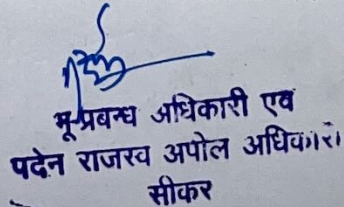 भू-प्रबन्ध अधिकारी एव
पदेन राजस्व अपोल अधिकारी
सीकर